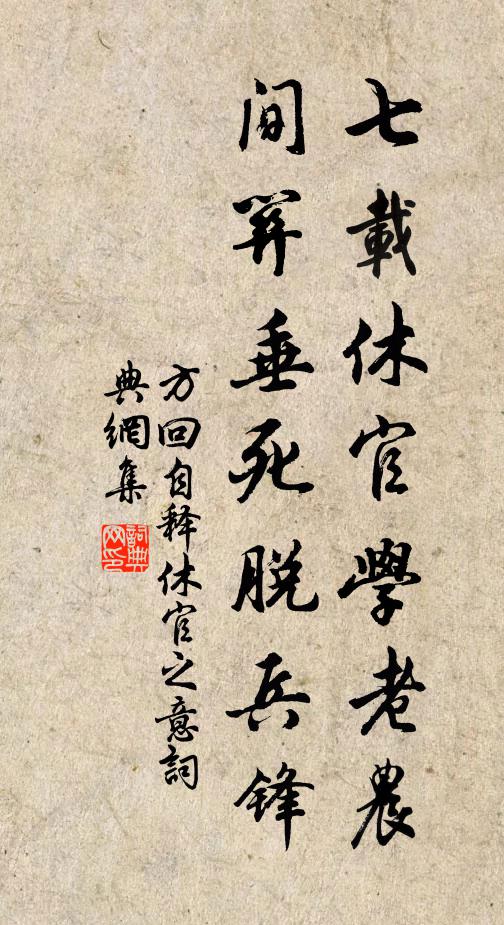 七載休官學老農
間算垂死脱兵鋒
方回自释休官之意詞
典網集
詞典
网印